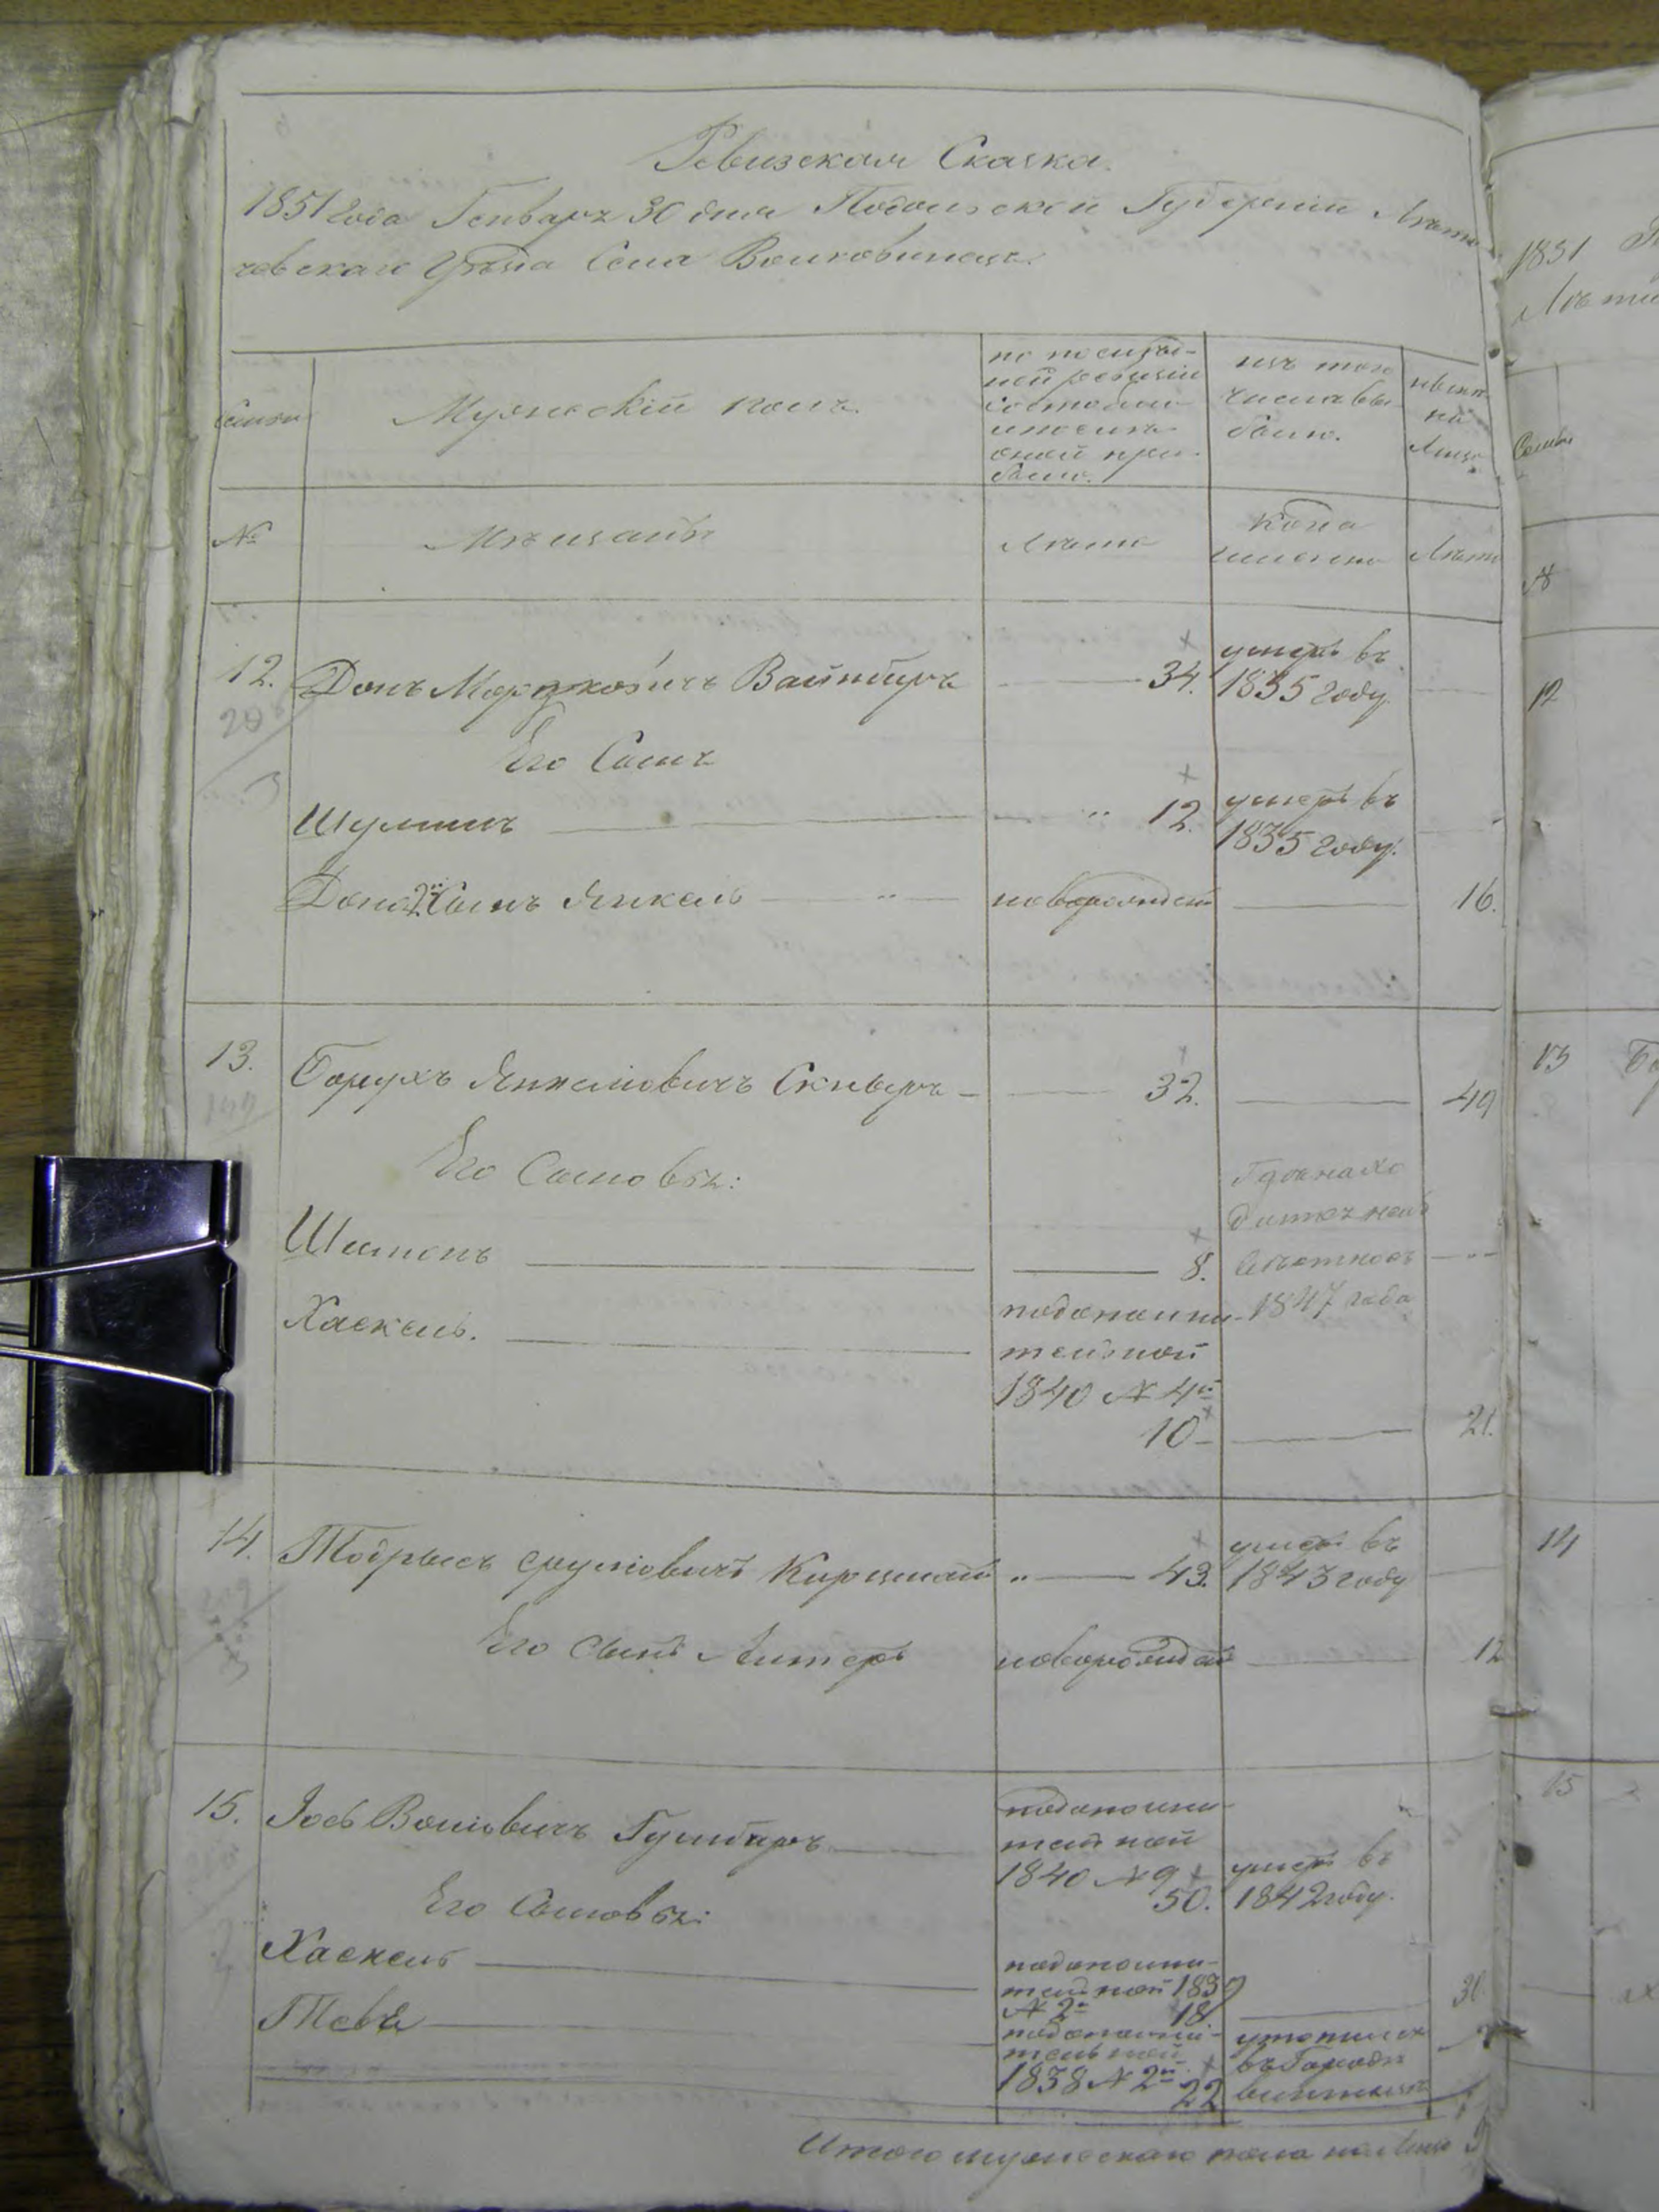 Ревизская Сказка.
1851 года Генваря 30 дня Подольской Губернии Лети
чевскаго Уезда Села Волковинецъ.
Семьи
Мужескій полъ.
по послѣд-
ней ревизіи
состояло
и послѣ
оной при-
было.
изъ того
числа вы-
было.
нынѣ
на
Лицо
№
Мѣщанъ
Лѣта
Когда
именно
Лѣта
12. Донъ Мордковичъ Вайнбергъ 34. умеръ въ
1835 году
20
Его Сынъ
Шулимъ 12. умеръ въ
1835 году.
Дона 2й Сынъ Янкель новорожден 16.
13. Борухъ Янкелiовичъ Скверъ 32. 49
Его Сыновья:
Шимонъ 8.
где нахо
дится неиз
вѣстно съ
1847 года
Хаскель.
по дополни-
тельной
1840 № 4й
10 21.
14. Тодрысъ Срулiовичъ Киршман 43. умеръ въ
1843 году
Его Сынъ Литеръ новорожден 12
15. Iось Волiовичъ Гулибаръ
по дополни-
тельной
1840 № 9
50.
умеръ въ
1842 году.
Его Сыновья:
Хаскель
по дополни-
тельной 1839
№ 2й 18. 31
Тевя
по дополни-
тельной
1838 № 2й
22
въ Городѣ
Итого мужескаго пола на лицо
1851
12
13
14
15